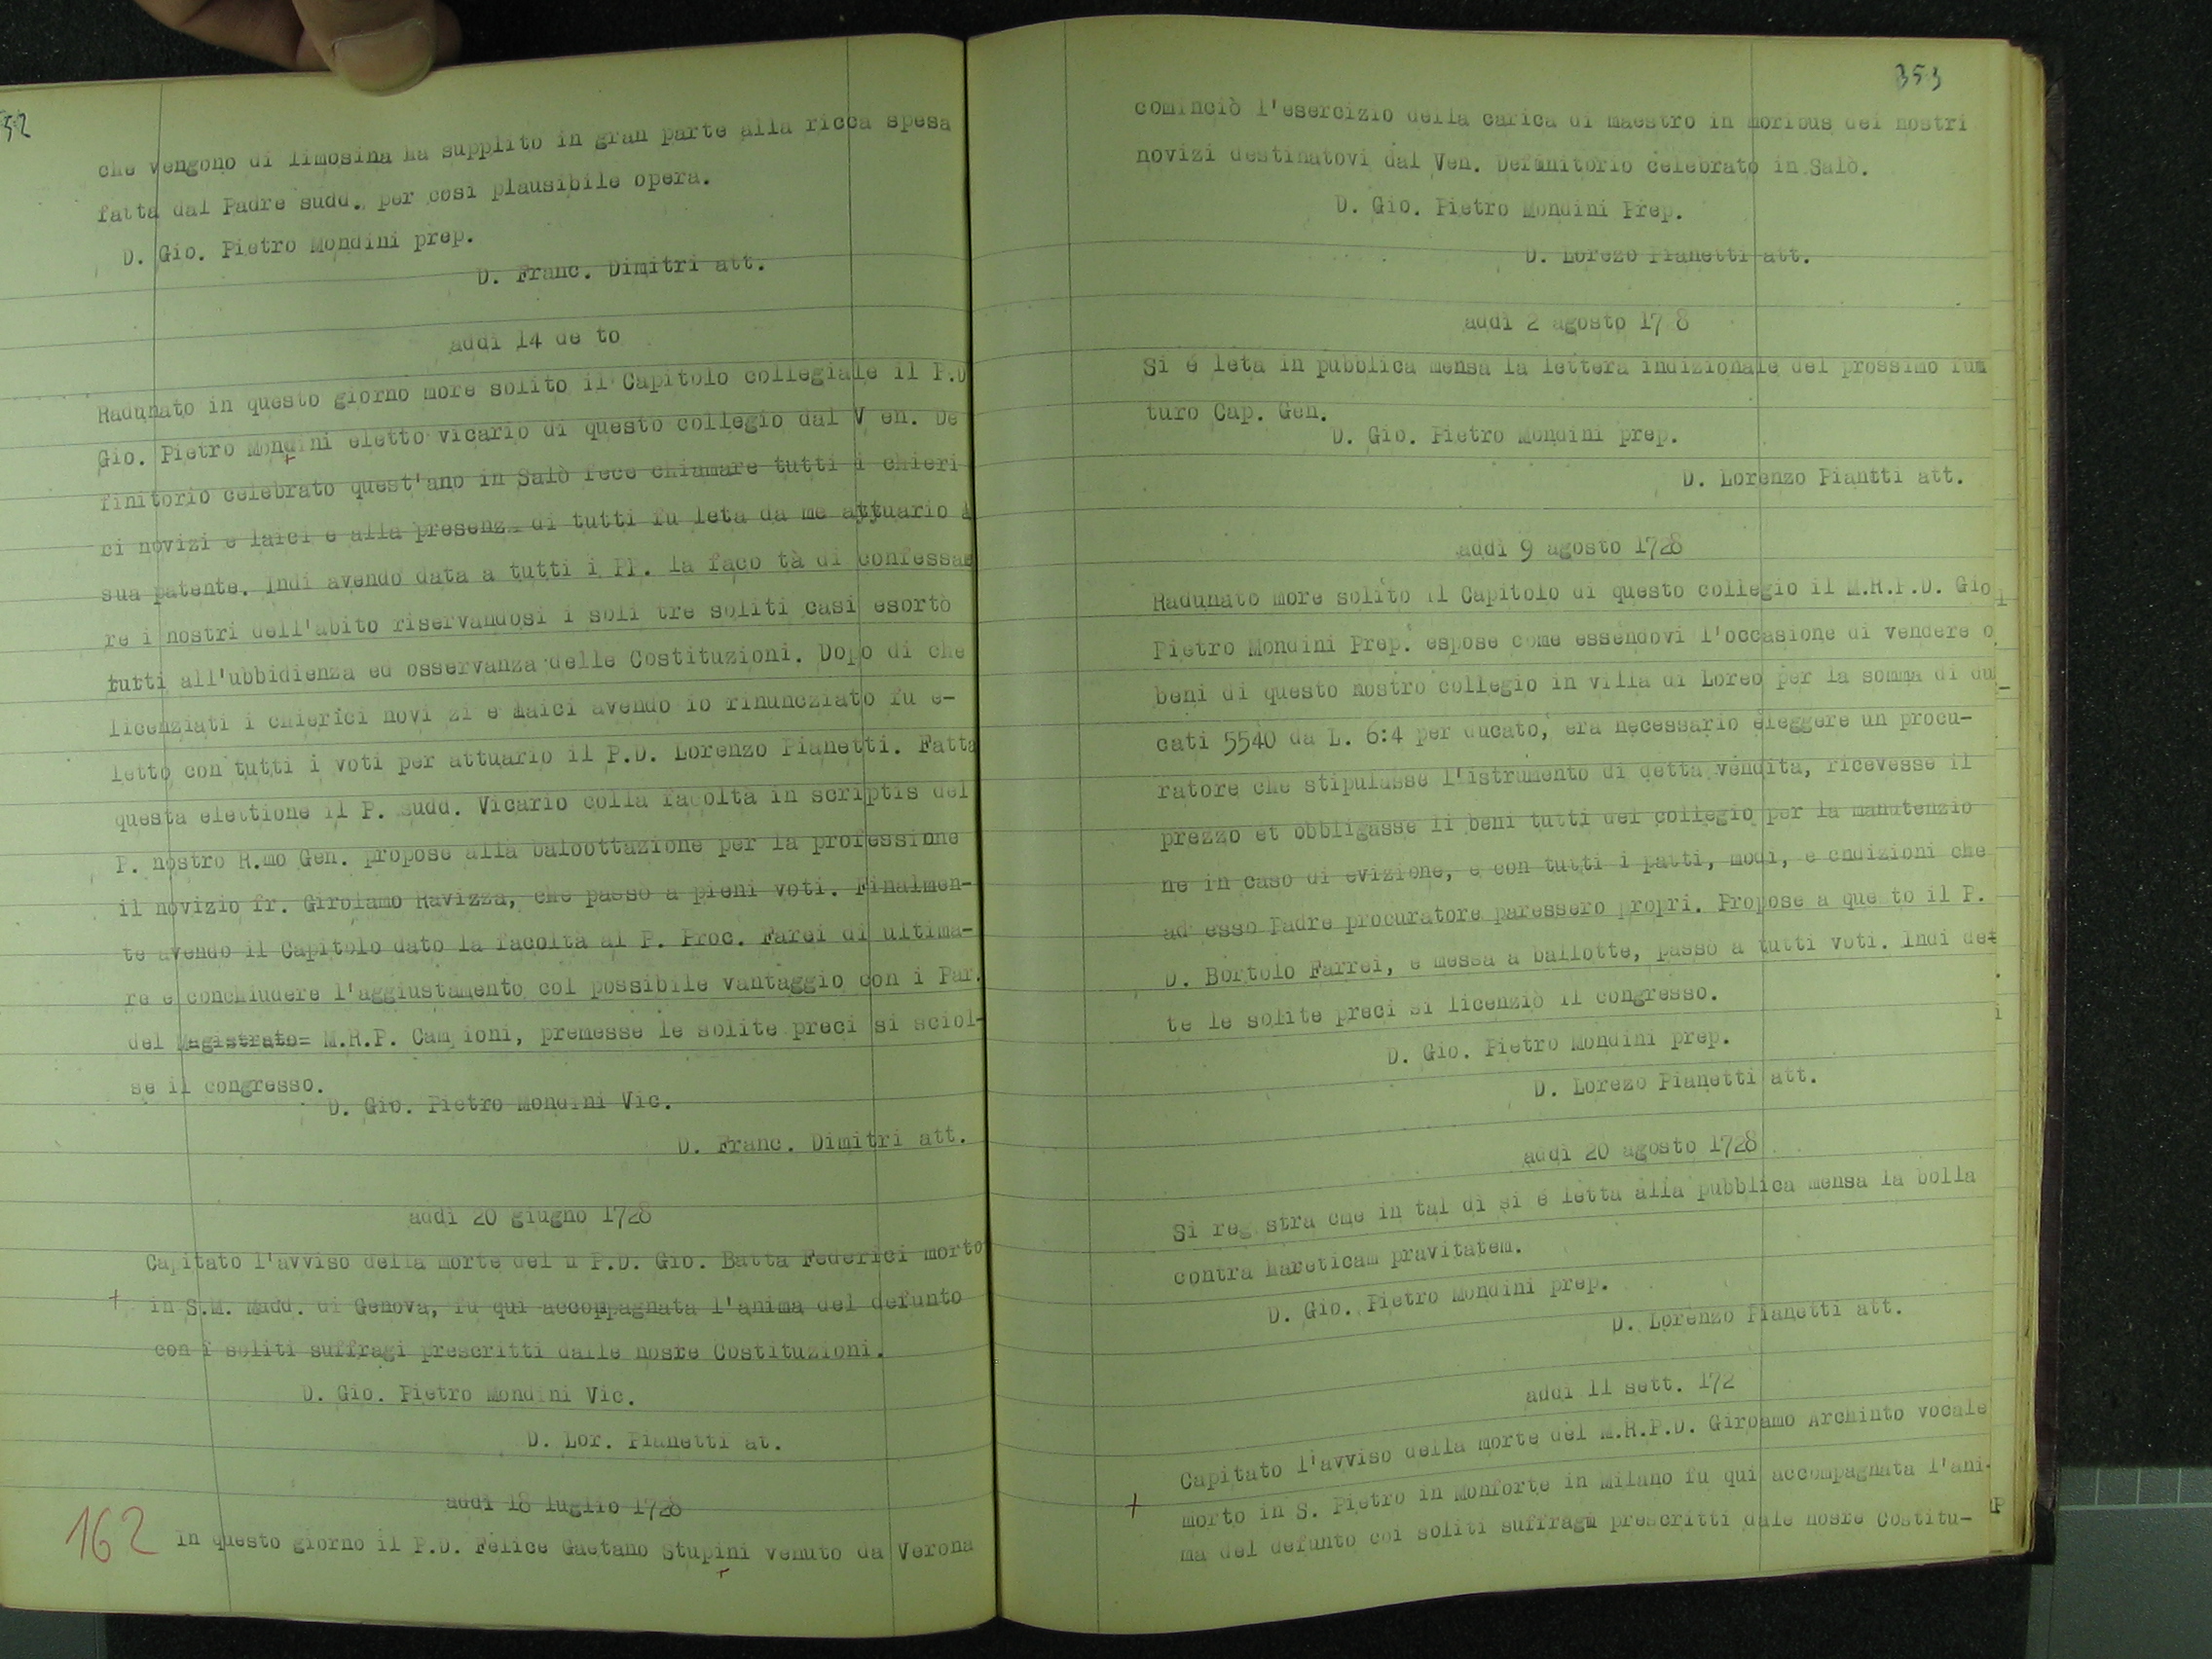 52
che vengono di limosina ha supplito in gran parte alla ricca spesa
fatta dal Padre sudd. per così plausibile opera.
D. Gio. Pietro Mondini prep.
D. Franc. Dimitri att.
addì 14 de to
Radunato in questo giorno more solito il Capitolo collegiale il P.D
Gio. Pietro Mondini eletto vicario di questo collegio dal V en. De
finitorio celebrato quest'ano in Salò fece chiamare tutti i chieri
ci novizi e laici e alla presenza di tutti fu leta da me attuario
sua patente. Indi avendo data a tutti i PP. la faco tà di confessa
re i nostri dell'abito riservandosi i soli tre soliti casi esortò
tutti all'ubbidienza ed osservanza delle Costituzioni. Dopo di che
licenziati i chierici novi zi e laici avendo io rinuncziato fu e-
letto con tutti i voti per attuario il P.D. Lorenzo Pianetti. Fatta
questa elettione il P. sudd. Vicario colla facoltà in scriptis del
P. nostro R.mo Gen. propose alla baloottazione per la professione
il novizio fr. Girolamo Ravizza, che passò a pieni voti. Finalmen-
te avendo il Capitolo dato la facoltà al P. Proc. Farei di ultima-
re e conchiudere l'aggiustamento col possibile vantaggio con i Par.
del Magistrato= M.R.P. Campioni, premesse le solite preci si sciol-
se il congresso.
D. Gio. Pietro Mondini Vic.
D. Franc. Dimitri att.
addì 20 giugno 1728
Capitato l'avviso della morte del n P.D. Gio. Batta Federici morto
+ in S.M. Madd. di Genova, fu qui accompagnata l'anima del defunto
con i soliti suffragi prescritti dalle nosre Costituzioni.
D. Gio. Pietro Mondini Vic.
D. Lor. Pianetti at.
addì 18 luglio 1728
162 In questo giorno il P.D. Felice Gaetano Stupini venuto da Verona
353
cominciò l'esercizio della carica di maestro in moribus dei nostri
novizi destinatovi dal Ven. Definitorio celebrato in Salò.
D. Gio. Pietro Mondini Prep.
D. Lorezo Pianetti att.
addì 2 agosto 17 8
Si é leta in pubblica mensa la lettera indizionale del prossimo fu
turo Cap. Gen.
D. Gio. Pietro Mondini prep.
D. Lorenzo Piantti att.
addì 9 agosto 1728
Radunato more solito il Capitolo di questo collegio il M.R.P.D. Gio
Pietro Mondini Prep. espose come essendovi l'occasione di vendere
beni di questo nostro collegio in villa di Loreo per la somma di du
cati 5540 da L. 6:4 per ducato, era necessario eleggere un procu-
ratore che stipulasse l'istrumento di detta vendita, ricevesse il
prezzo et obbligasse li beni tutti del collegio per la manutenzio
ne in caso di evizione, e con tutti i patti, modi, e cndizioni che
ad esso Padre procuratore paressero propri. Propose a que to il P.
D. Bortolo Farrei, e messa a ballotte, passò a tutti voti. Indi det
te le solite preci si licenziò il congresso.
D. Gio. Pietro Mondini prep.
D. Lorezo Pianetti att.
addì 20 agosto 1728
Si reg stra che in tal dì si é letta alla pubblica mensa la bolla
contra hareticam pravitatem.
D. Gio. Pietro Mondini prep.
D. Lorenzo Pianetti att.
addì 11 sett. 172
Capitato l'avviso della morte del M.R.P.D. Giroamo Archinto vocale
+ morto in S. Pietro in Monforte in Milano fu qui accompagnata l'ani-
ma del defunto coi soliti suffragi prescritti dale nosre Costitu-